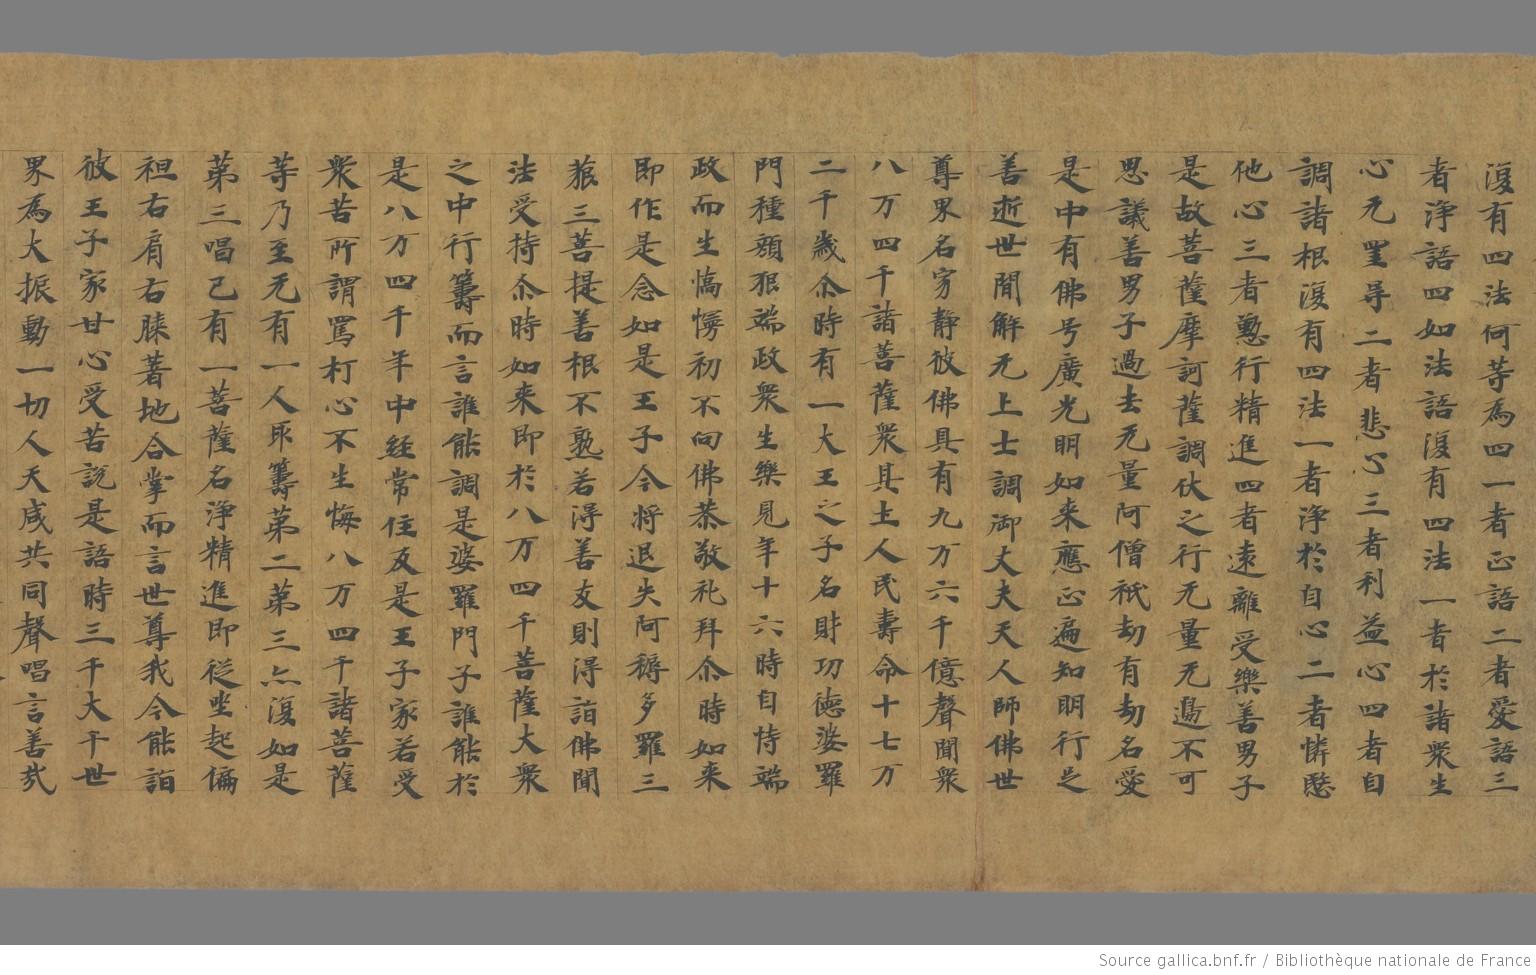 復有四法何等為四一者正語二者愛語三
者淨語四如法語復有四法一者於諸眾生
心无罣㝵二者悲心三者利益心四者自
調諸根復有四法一者淨於自心二者憐愍
他心三者懃行精進四者遠離受樂善男子
是故菩薩摩訶薩調伏之行无量无邊不可
思議善男子過去无量阿僧祇劫有劫名愛
是中有佛号廣光明如来應正遍知明行足
善逝世間解无上士調御丈夫天人師佛世
尊界名穷靜彼佛具有九万六千億聲聞衆
八万四千諸菩薩衆其土人民壽命十七万
二千歲尒時有一大王之子名財功德婆羅
門種顏狠端政衆生樂見年十六時自恃端
政而生憍慢初不向佛恭敬礼拜尒時如来
即作是念如是王子今将退失阿耨多羅三
藐三菩提善根不熟若得善友則得詣佛聞
法受持尒時如来即於八万四千菩薩大衆
之中行籌而言誰能調是婆羅門子誰能於
是八万四千年中経常住及是王子家若受
衆苦所謂罵打心不生悔八万四千諸菩薩
等乃至无有一人取籌第二第三亦復如是
第三唱已有一菩薩名淨精進即從坐起偏
袒右肩右膝著地合掌而言世尊我今能詣
彼王子家甘心受苦說是語時三千大千世
界為大振動一切人天咸共同聲唱言善㢤